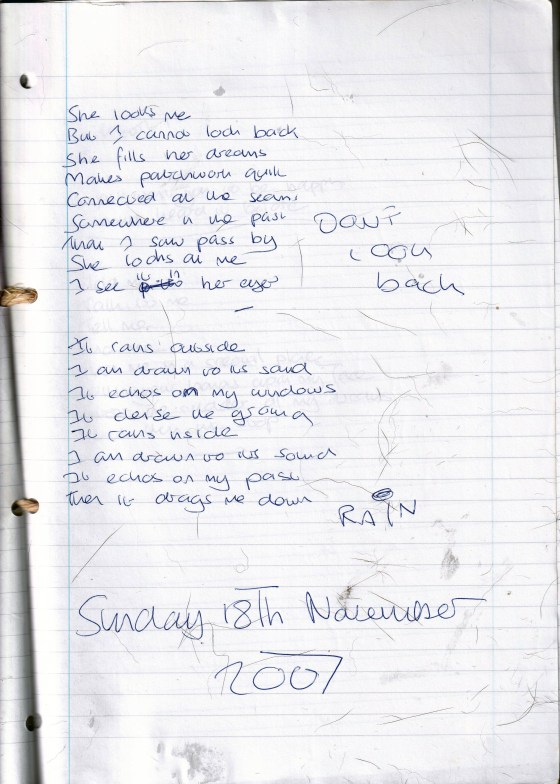 She looks me
But I cannot look back
She fills her dreams
Makes patchwork quilt
Connected at the seams
Somewhere in the past
that I saw pass by
She looks at me
I see it in her eyes
DONT
LOOK
back
It rains outside
I am drawn to its sound
It echos on my windows
It the ground
It rains inside
I am drawn to its sound
It echos on my past
Then it drags me down
RAIN
Sunday 18Th November
2007